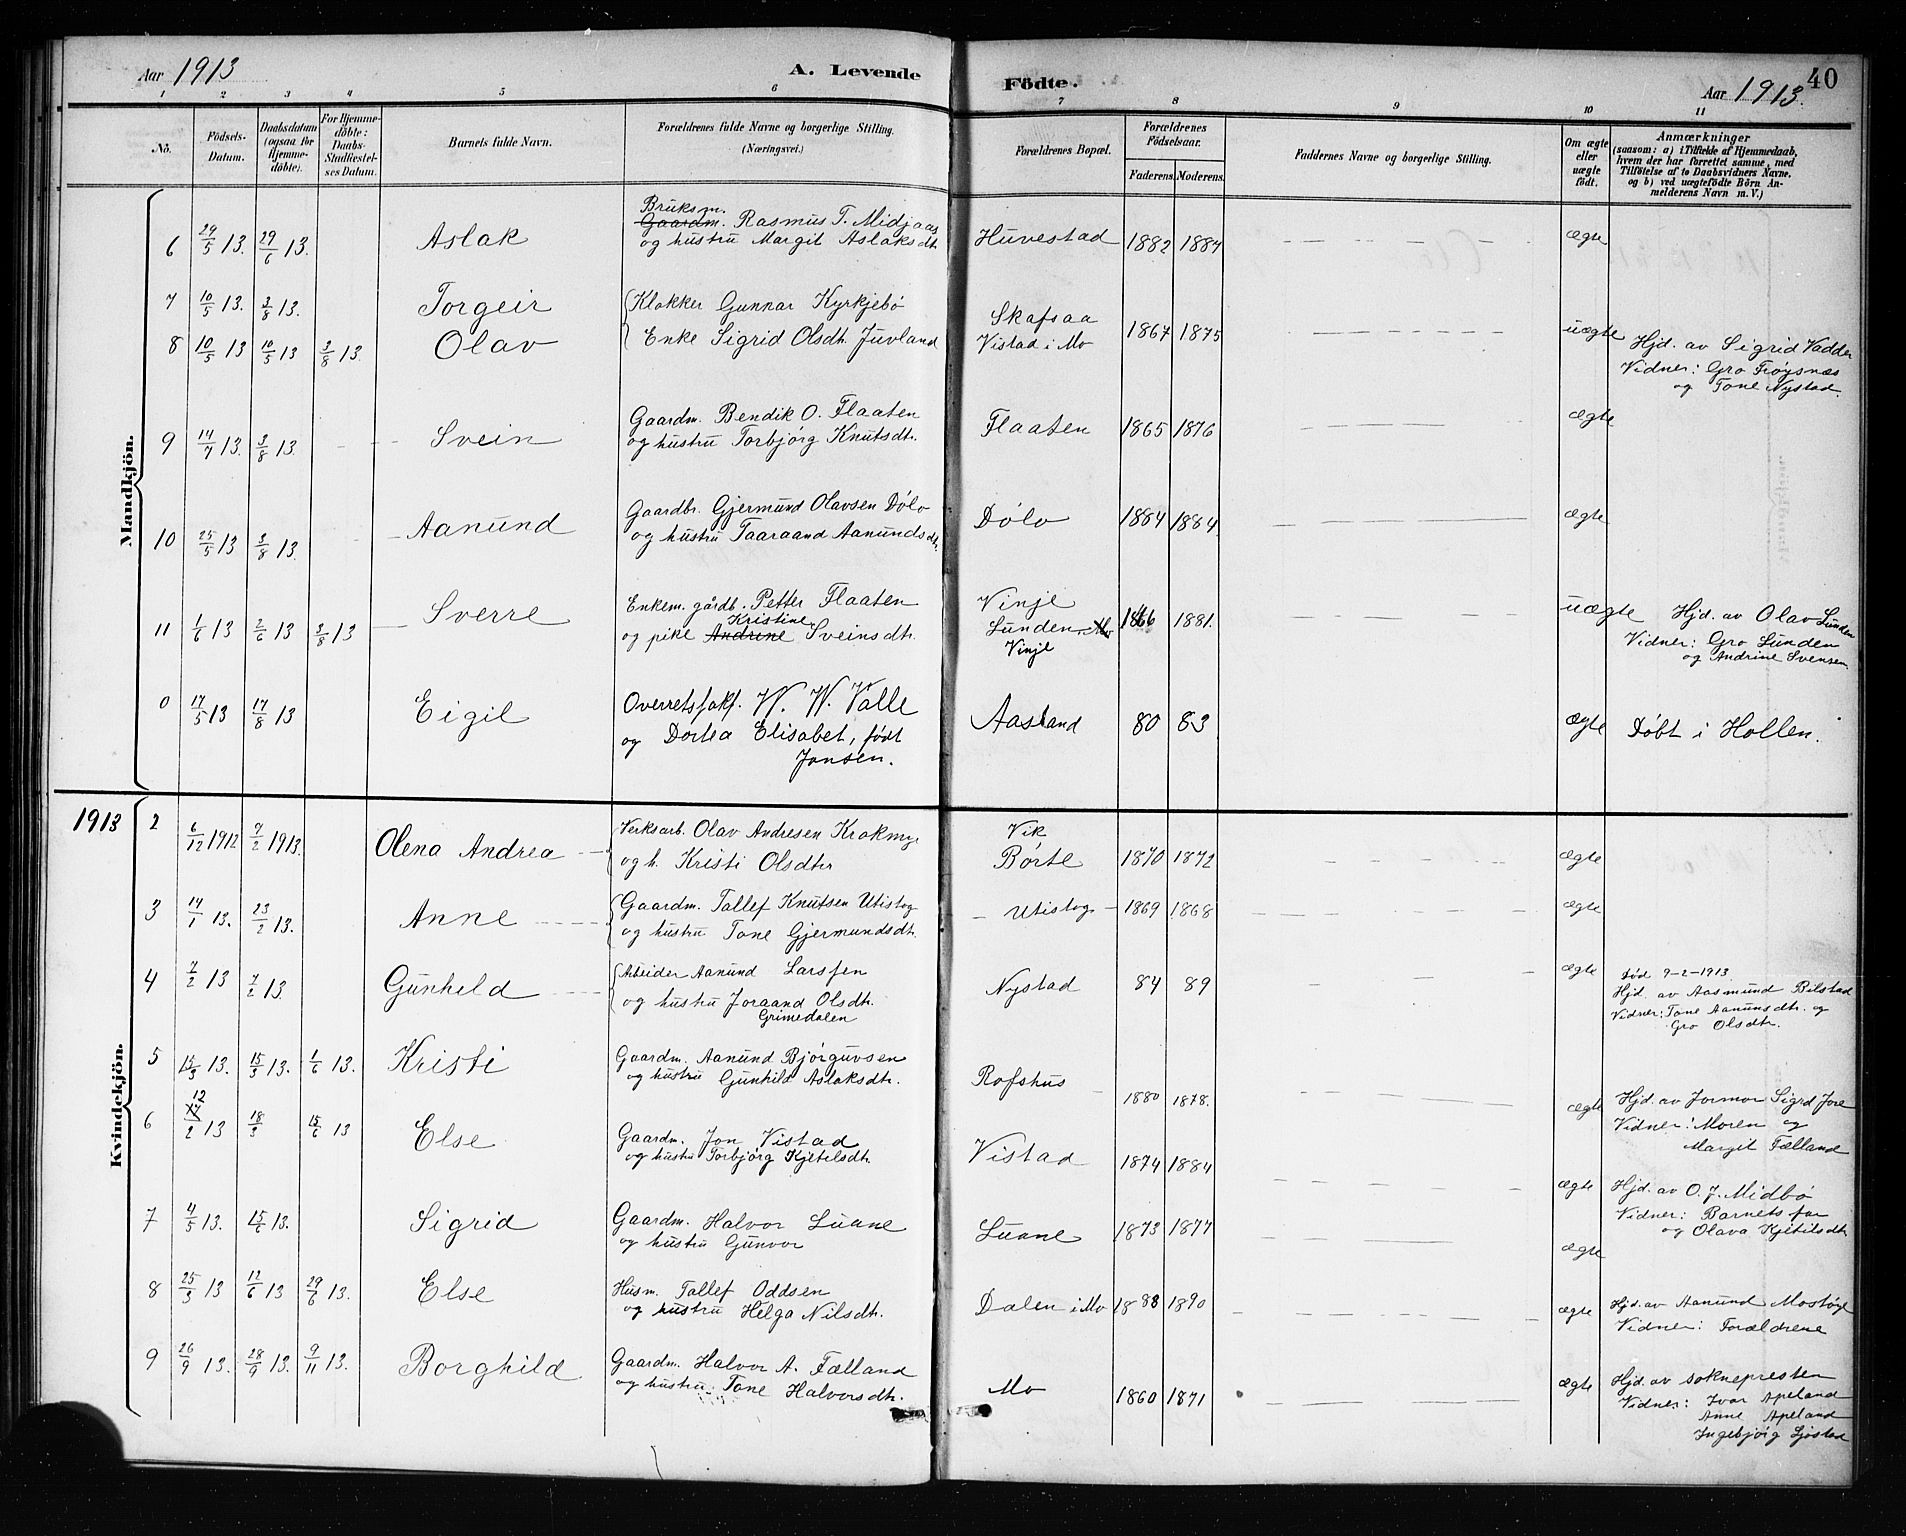 Aar 1913
A. Levende
Födte.
Aar 1913.
40
1 2 3 4 5 6 7 8 9 10 11
No.
Födsels-Datum.
Daabsdatum (ogsaa for Hjemmedöbte).
For Hjemmedöbte: Daabs-Stadfæstelses Datum.
Barnets fulde Navn.
Forældrenes fulde Navne og borgerlige Stilling.
(Næringsvei.)
Forældrenes Bopæl.
Forældrenes Födselsaar.
Faderens. Moderens.
Faddernes Navne og borgerlige Stilling.
Om ægte eller uægte födt.
Anmærkninger
(saasom: a) i Tilfælde af Hjemmedaab, hvem der har forrettet samme, med Tilföielse af to Daabsvidners Navne. og b) ved uægtefödte Börn Anmelderens Navn m. V.)
Mandkjön.
Bruksm.
6 29/5 13. 29/6 13. Aslak Gaardm. Rasmus T. Midjaas Huvestad 1882 1884 ægte
og hustru Margit Aslaksdt.
7 10/5 13. 3/8 13. Torgeir Klokker Gunnar Kyrkjebö Skafsaa 1867 1875 uægte
8 10/5 13 10/5 13 3/8 13. Olav Enke Sigrid Olsdt. Juvland Vistad i Mo
Hjd. av Sigrid Vadder
Vidner: Gro Fröysnæs
og Tone Nystad.
9 14/7 13. 3/8 13. Svein Gaardm. Bendik O. Flaaten Flaaten 1865 1876 ægte
og hustru Torbjörg Knutsdt.
10 25/5 13 3/8 13. Aanund Gaardbr. Gjermund Olavsen Dölo Dölo 1884 1884 ægte
og hustru Taaraand Aanundsdt.
11 1/6 13 2/6 13 3/8 13 Sverre Enkem. gårdb. Petter Flaaten Vinje 1866 1881. uægte
Kristine
og pike Andrine Sveinsdt. Lunden, Mo
Vinje
Hjd. av Olav Lunden
Vidner: Gro Lunden
og Andrine Svensen
0 17/5 13 17/8 13 Eigil Overretssakf. W. W. Valle Aasland 80 83 ægte Döbt i Hollen.
og Dortea Elisabet, født
Jansen.
Kvindekjön.
1913
2 6/12 1912 9/2 1913. Olena Andrea Verksarb. Olav Andresen Krokmyr Vik 1870 1872 ægte
og h. Kristi Olsdter Börte
3 14/1 13. 23/2 13. Anne Gaardm. Tallef Knutsen Utistog Utistog 1869 1868 ægte
og hustru Tone Gjermundsdt.
4 7/2 13 7/2 13. Gunhild Arbeider Aanund Larssen Nystad 84 89 ægte
og hustru Joraand Olsdt.
Grimedalen
Död 9-2-1913
Hjd. av Aasmund Bilstad
Vidner: Tone Aanunsdt. og
Gro Olsdt.
5 15/3 13. 15/3 13. 1/6 13. Kristi Gaardm. Aanund Bjørguvsen Rofshus 1880 1878. ægte
og hustru Gunhild Aslaksdt.
Hjd. av Jormor Sigrd Jore
Vidner: Moren og
Margit Fælland
6 12/2 13 18/3 15/6 13 Else Gaardm. Jon Vistad Vistad 1874 1884 ægte
og hustru Torbjörg Kjetilsdt.
Hjd. av O. J. Midbö
Vidner: Barnets far
og Olava Kjetilsdt.
7 4/5 13. 15/6 13. Sigrid Gaardm. Halvor Luane Luane 1873 1877 ægte
og hustru Gunvor
8 25/3 13 12/6 13 29/6 13. Else Husm. Tallef Oddsen Dalen i Mo 1888 1890 ægte
og hustru Helga Nilsdt.
Hjd. av Aanund Mostöyl
Vidner: Forældrene
9 26/9 13. 28/9 13. 9/11 13. Borghild Gaardm. Halvor A. Fælland Mo 1860 1871 ægte
og hustru Tone Halvorsdt.
Hjd. av soknepresten
Vidner: Ivar Apeland
Anne Apeland
Ingebjörg Sjöstad